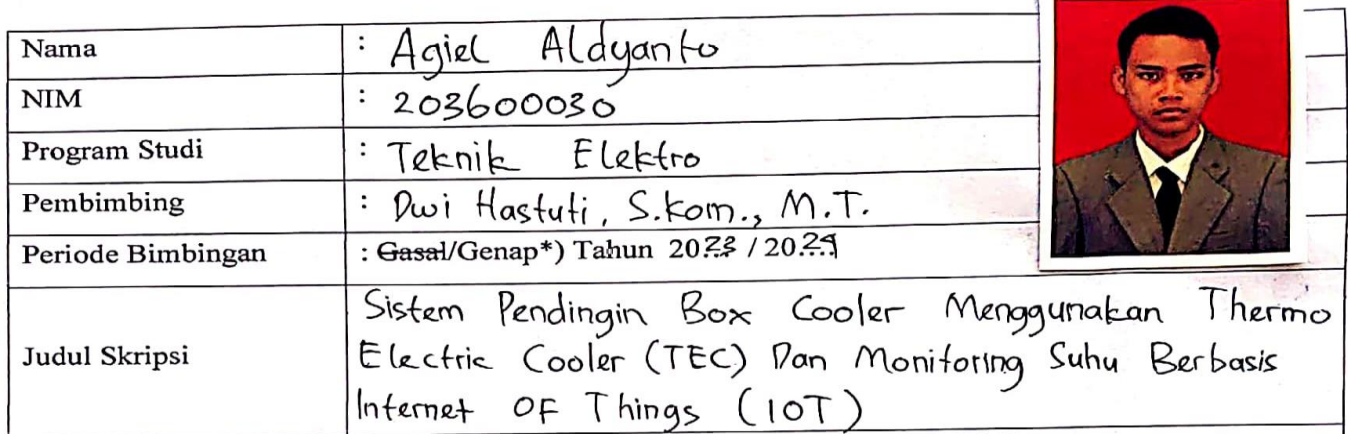 Nama : Agiel Aldyanto
NIM : 203600030
Program Studi : Teknik Elektro
Pembimbing : Dwi Hastuti, S.Kom., M.T.
Periode Bimbingan : Gasal/Genap*) Tahun 2023 / 2024
Judul Skripsi
Sistem Pendingin Box Cooler Menggunakan Thermo
Electric Cooler (TEC) Dan Monitoring Suhu Berbasis
Internet OF Things (IOT)